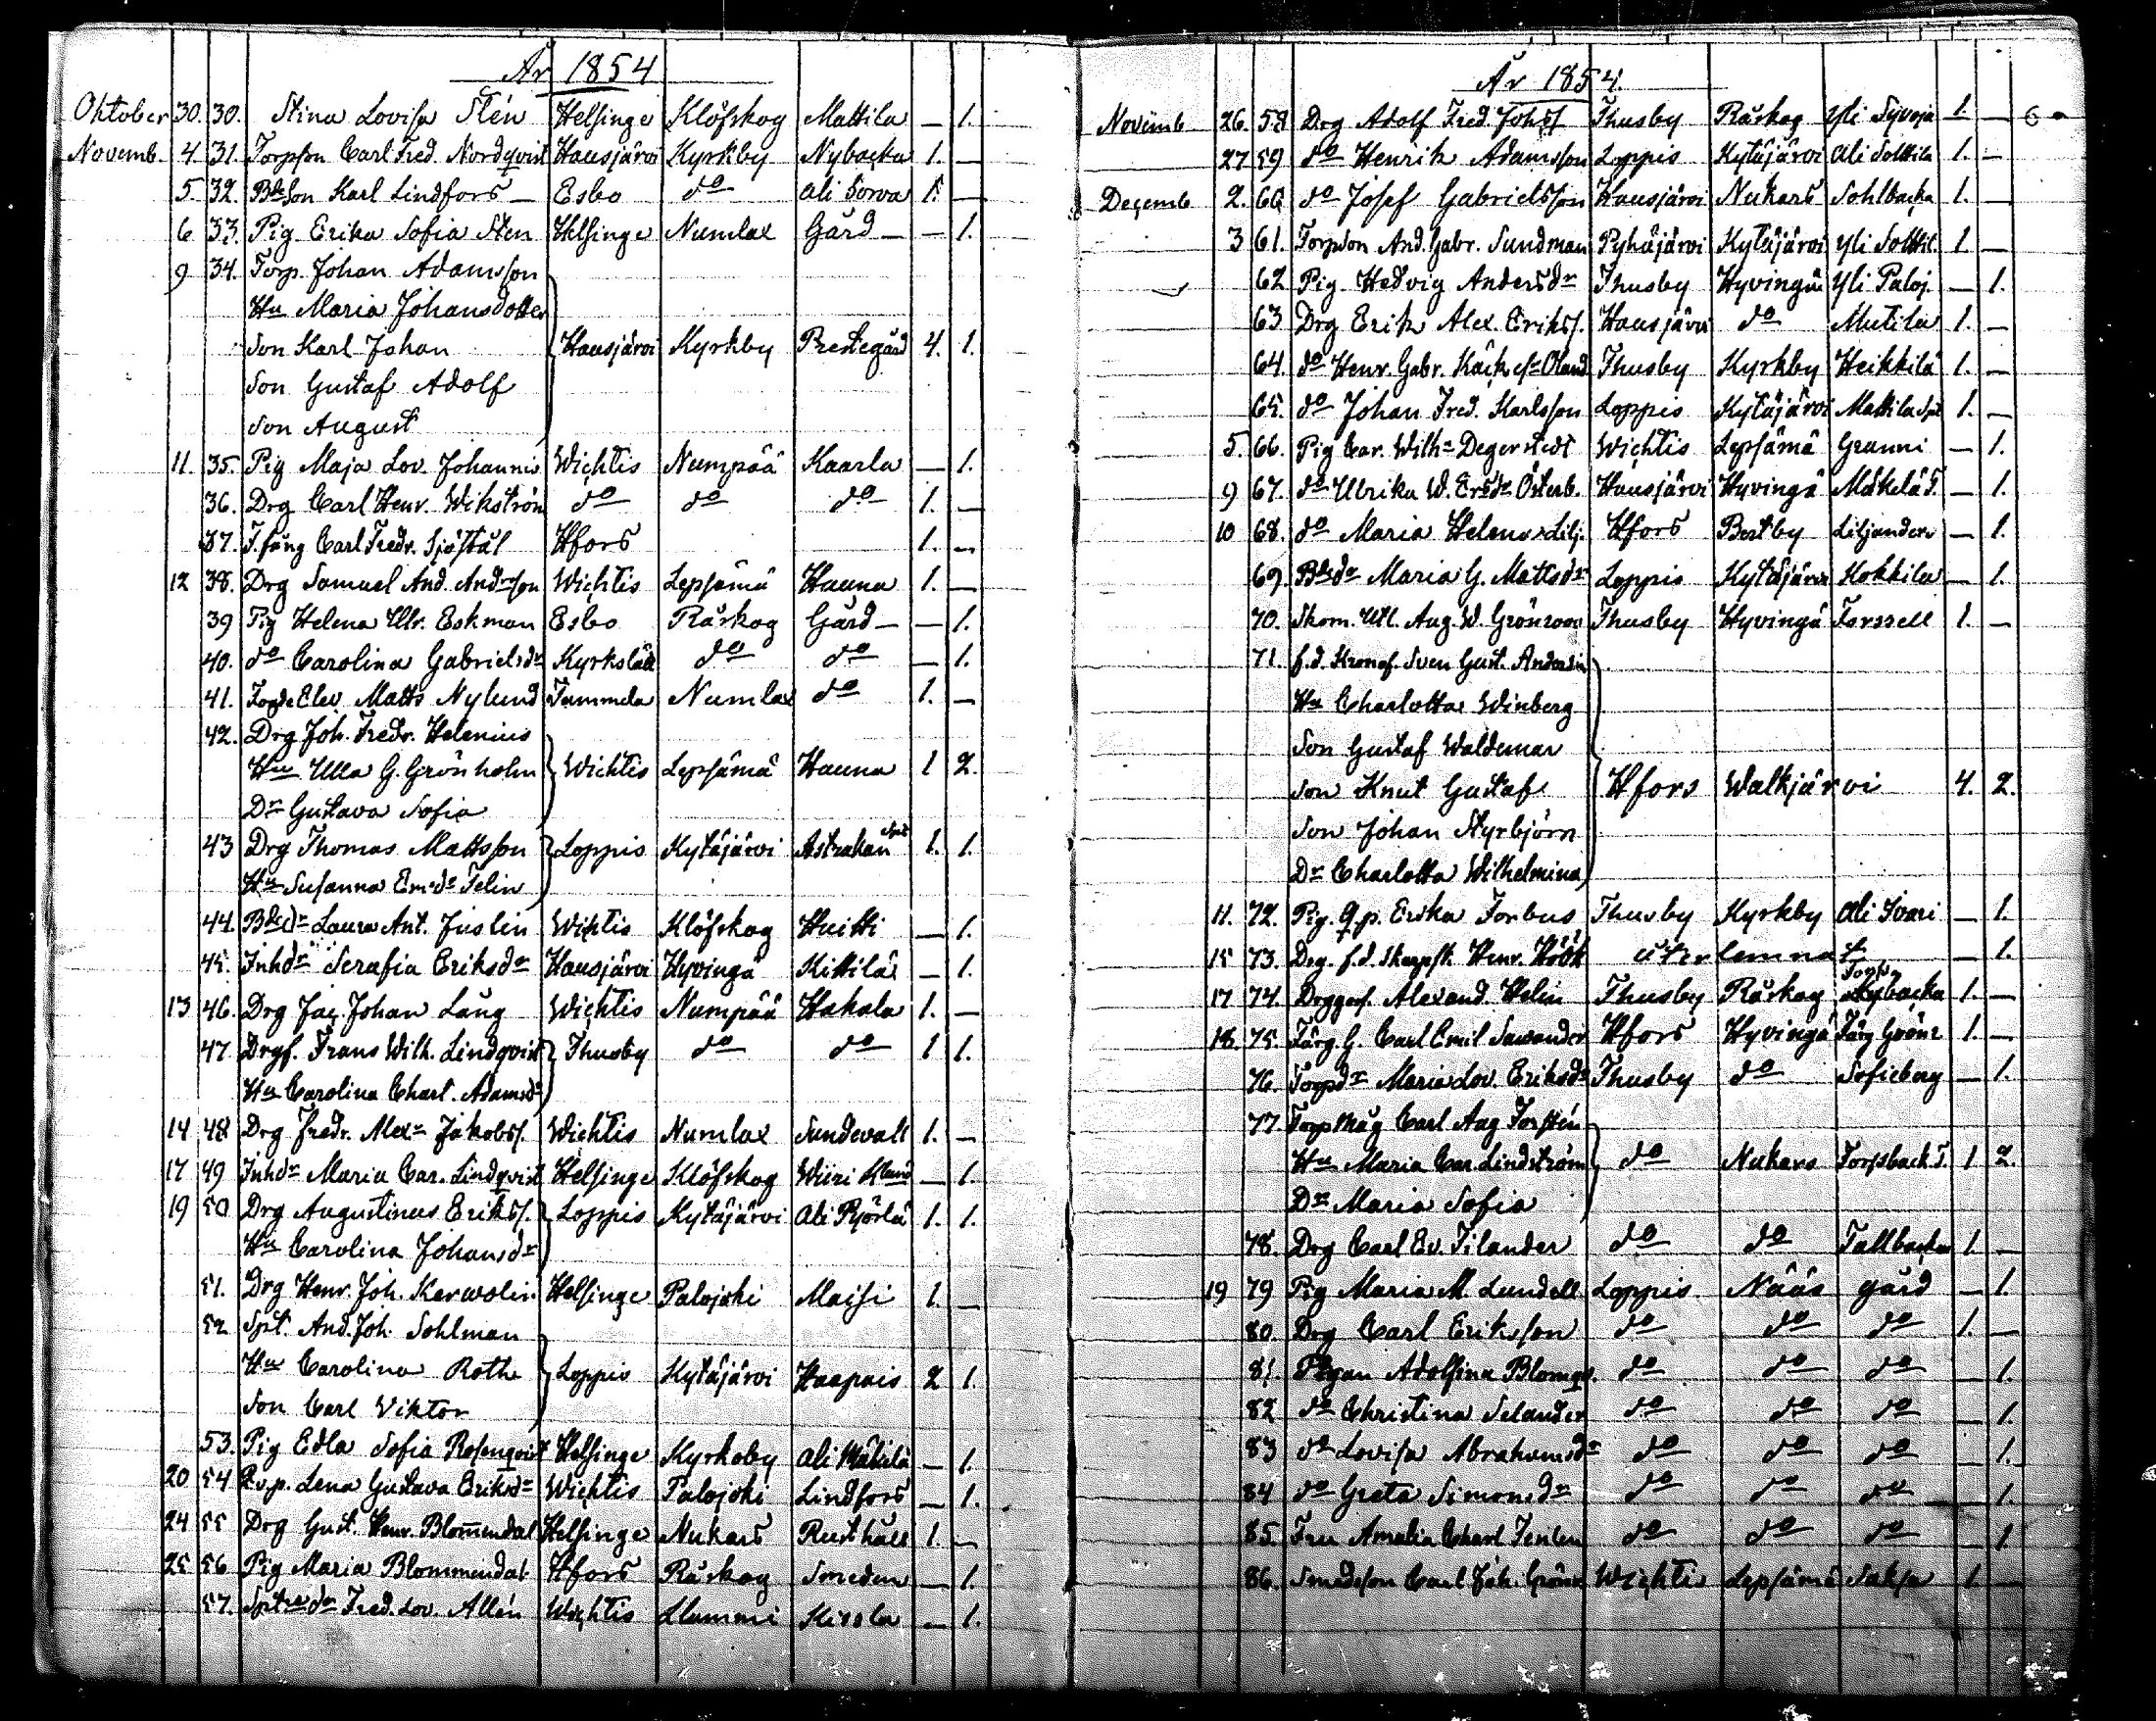 År 1854
Oktober 30. 30. Stina Lovisa Stén Helsinge Klöfskog Mattila — 1.
Novemb. 4. 31. Torpson Carl Fred. Nordqvist Hausjärvi Kyrkby Nybacka 1. —
5 32. Bdeson Karl Lindfors — Esbo do Ali Sorva 1. —
6 33. Pig Erika Sofia Sten Helsinge Numlax Gård — — 1.
9 34. Torp. Johan Adamsson
Hu Maria Johansdotter
Son Karl Johan Hausjärvi Kyrkby Prestegård 4. 1.
Son Gustaf Adolf
Son August
11. 35. Pig Maja Lov. Johannis Wichtis Numpää Kaarla — 1.
36. Drg Carl Henr. Wikström do do do 1. —
37. Carl Fredr. Sjöstål Hfors 1. —
12 38. Drg Samuel And. Andrsson Wichtis Lepsämä Hauna 1. —
39 Pig Helena Ulr. Eskman Esbo Råskog Gård — — 1.
40. do Carolina Gabrielsdr Kyrkslätt do do — 1.
41. Elev Matts Nylund Tammela Numlax do 1. —
42. Drg Joh. Fredr. Helenius
Hu Ulla G. Grönholm Wichtis Lepsämä Hauna 1 2.
Dr Gustava Sofia
43 Drg Thomas Mattsson Loppis Kytäjärvi Astrakan 1. 1.
Hu Susanna Felin
44. Bdedr Laura Ant. Juslin Wichtis Klöfskog Huitti — 1.
45. Inhdr Serafia Eriksdr Hausjärvi Hyvingä Kittilä — 1.
13 46. Drg Jac. Johan Lång Wichtis Numpää Hakala 1. —
47. Drgf. Frans Wilh. Lindqvist Thusby do do 1 1.
Hu Carolina Charl. Adamsdr
14 48 Drg Fredr. Alexr Jakobss. Wichtis Numlax Sundevall 1. —
17 49 Inhdr Maria Car. Lindqvist Helsinge Klöfskog Wiiri — 1.
19 50 Drg Augustinus Erikss. Loppis Kytäjärvi Ali Pyörlä 1. 1.
Hu Carolina Johansdr
51. Drg Henr. Joh. Kerwolin Helsinge Palojoki Maisi 1. —
52 Spt. And. Joh. Sohlman
Hu Carolina Rothe Loppis Kytäjärvi Haapais 2 1.
Son Carl Viktor
53. Pig Edla Sofia Rosenqvist Helsinge Kyrkoby Ali — 1.
20 54 Lena Gustava Eriksdr Wichtis Palojoki Lindfors — 1.
24 55 Drg Gust. Henr. Blommendal Helsinge Nukars Rusthåll 1. —
25 56 Pig Maria Blommendal Hfors Råskog Smeden — 1.
57. Fred. Lov. Allén Wichtis Kissla — 1.
År 1854.
Novemb 26. 58 Drg Adolf Fred. Johss Thusby Råskog Yli Syvoja 1. — 6
27 59 do Henrik Adamsson Loppis Kytäjärvi Ali Solttila 1. —
Decemb 2. 60 do Josef Gabrielsson Hausjärvi Nukars Sohlbacka 1. —
3 61. Torpson And. Gabr. Sundman Pyhäjärvi Kytäjärvi Yli Solttil. 1. —
62 Pig Hedvig Andersdr Thusby Hyvingä Yli Paloj. — 1.
63 Drg Erik Alex. Erikss. Hausjärvi do Mutila 1. —
64. do Henr. Gabr. Thusby Kyrkby Heikkilä 1. —
65. do Johan Fred. Karlsson Loppis Kytäjärvi Mattila 1. —
5. 66. Pig Car. Wilh. Degerstedt Wichtis Lepsämä Granni — 1.
9 67. do Ulrika W. Österb. Hausjärvi Hyvingä Mäkelä T. — 1.
10 68. do Maria Helena Lilj. Hfors Liljander — 1.
69. Bdedr Maria G. Mattsdr Loppis Kytäjärvi Kokkila — 1.
70. Skom. Aug. W. Grönroos Thusby Hyvingä Forssell 1. —
71. f.d. Sven Gust. Anderss
Hu Charlotta Winberg
Son Gustaf Waldemar
Son Knut Gustaf Hfors Walkjärvi 4. 2.
Son Johan Styrbjörn
Dr Charlotta Wilhelmina
11. 72. Pig. Erika Forbus Thusby Kyrkby Ali — 1.
15 73. Drg. f.d. Henr. Höök återlemnat — 1.
17 74. Alexand. Helin Thusby Råskog Torp. Nybacka 1. —
18. 75. Färg. G. Carl Emil Sawander Hfors Hyvingä Färg Grönr 1. —
76. Torpdr Maria Lov. Eriksdr Thusby do Sofieberg — 1.
77. Torpmåg Carl Aug Forstén
Hu Maria Car. Lindström do Nukars Torpback T. 1 2.
Dr Maria Sofia
78. Drg Carl Ev. Tilander do do Tallbacka 1. —
19 79 Pig Maria M. Lundell Loppis Nääs gård — 1.
80. Drg Carl Eriksson do do do 1. —
81. Pigan Adolfina Blomqv. do do do — 1.
82 do Christina Selander do do do — 1.
83 do Lovisa Abrahamsdr do do do — 1.
84 do Greta Simonsdr do do do — 1.
85. Fru Amalia Charl do do do — 1
86. Smedsson Carl Joh. Grönr Wichtis Lepsämä Saksa 1. —